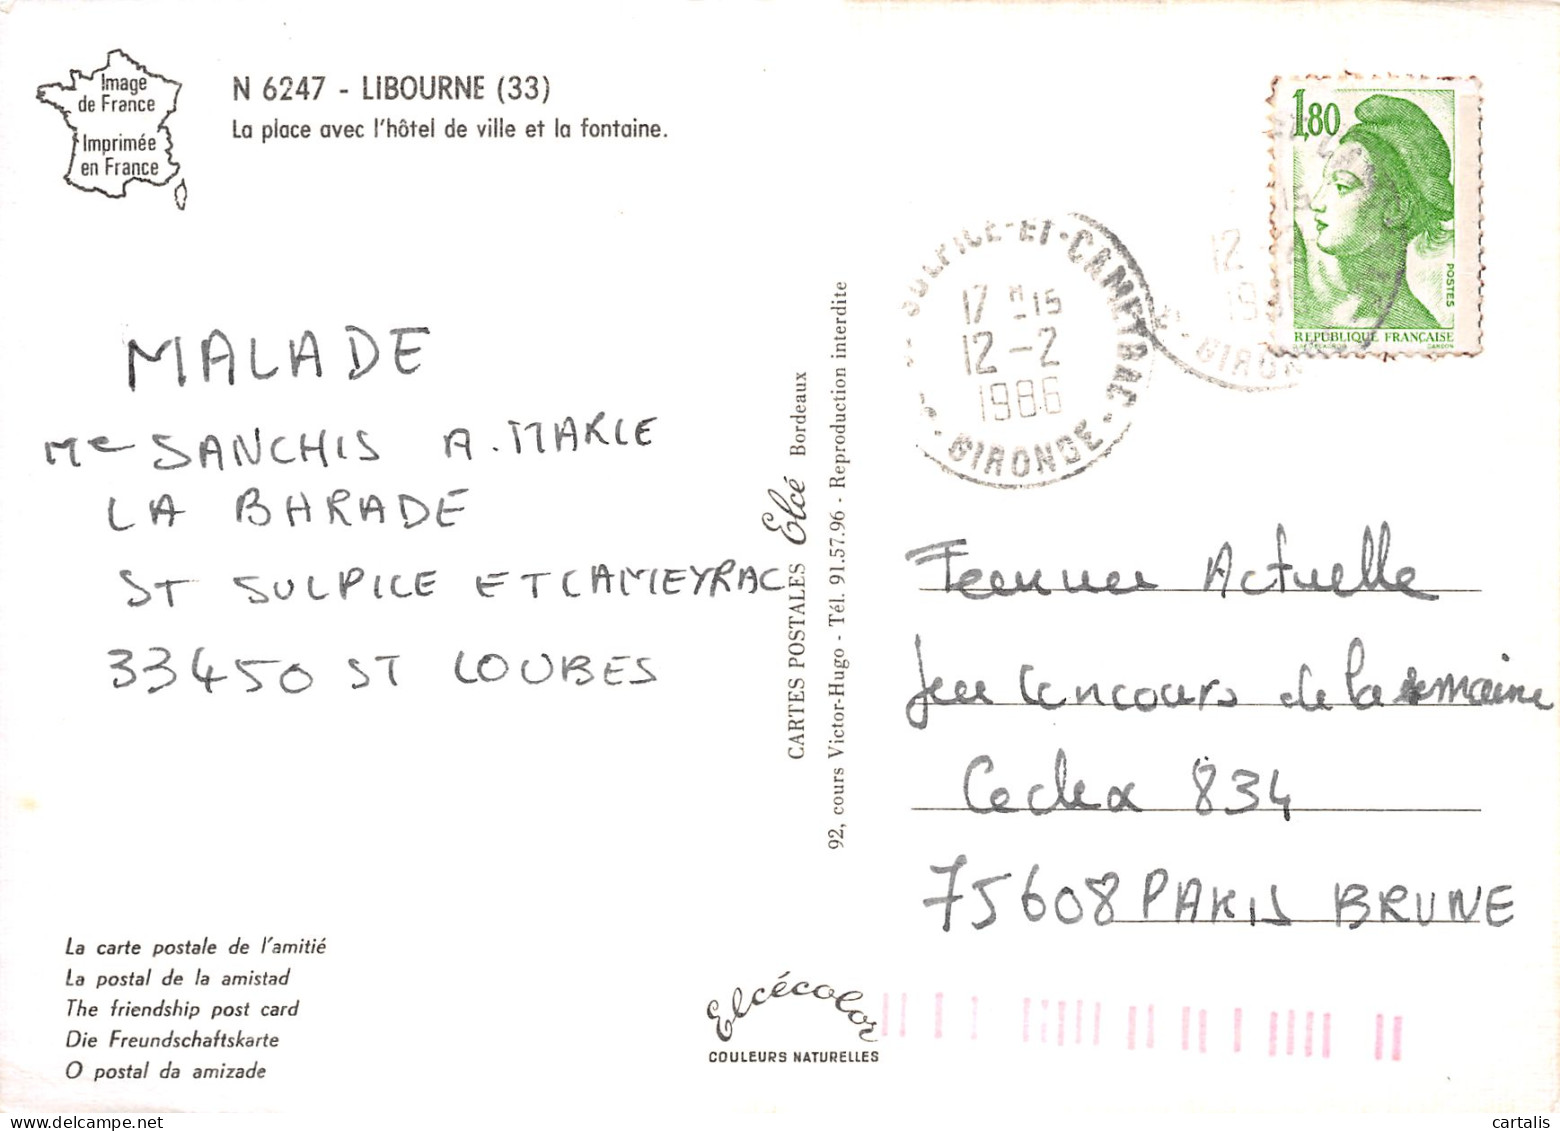 Image
de France
Imprimée
en France
N 6247 - LIBOURNE (33)
La place avec l'hôtel de ville et la fontaine.
1,80
POSTES
REPUBLIQUE FRANÇAISE
GANDON
SULPICE-ET-CAMEYRAC
17 H 15
12 - 2
1986
GIRONDE
12
GIRONDE
MALADE
Me SANCHIS A. MARIE
LA BARADE
ST SULPICE ET CAMEYRAC
33450 ST LOUBES
CARTES POSTALES Elcé Bordeaux
92, cours Victor-Hugo - Tél. 91.57.96 - Reproduction interdite
Femme Actuelle
Jeu Concours de la semaine
Cedex 834
75608 PARIS BRUNE
La carte postale de l'amitié
La postal de la amistad
The friendship post card
Die Freundschaftskarte
O postal da amizade
Elcécolor
COULEURS NATURELLES
cartalis